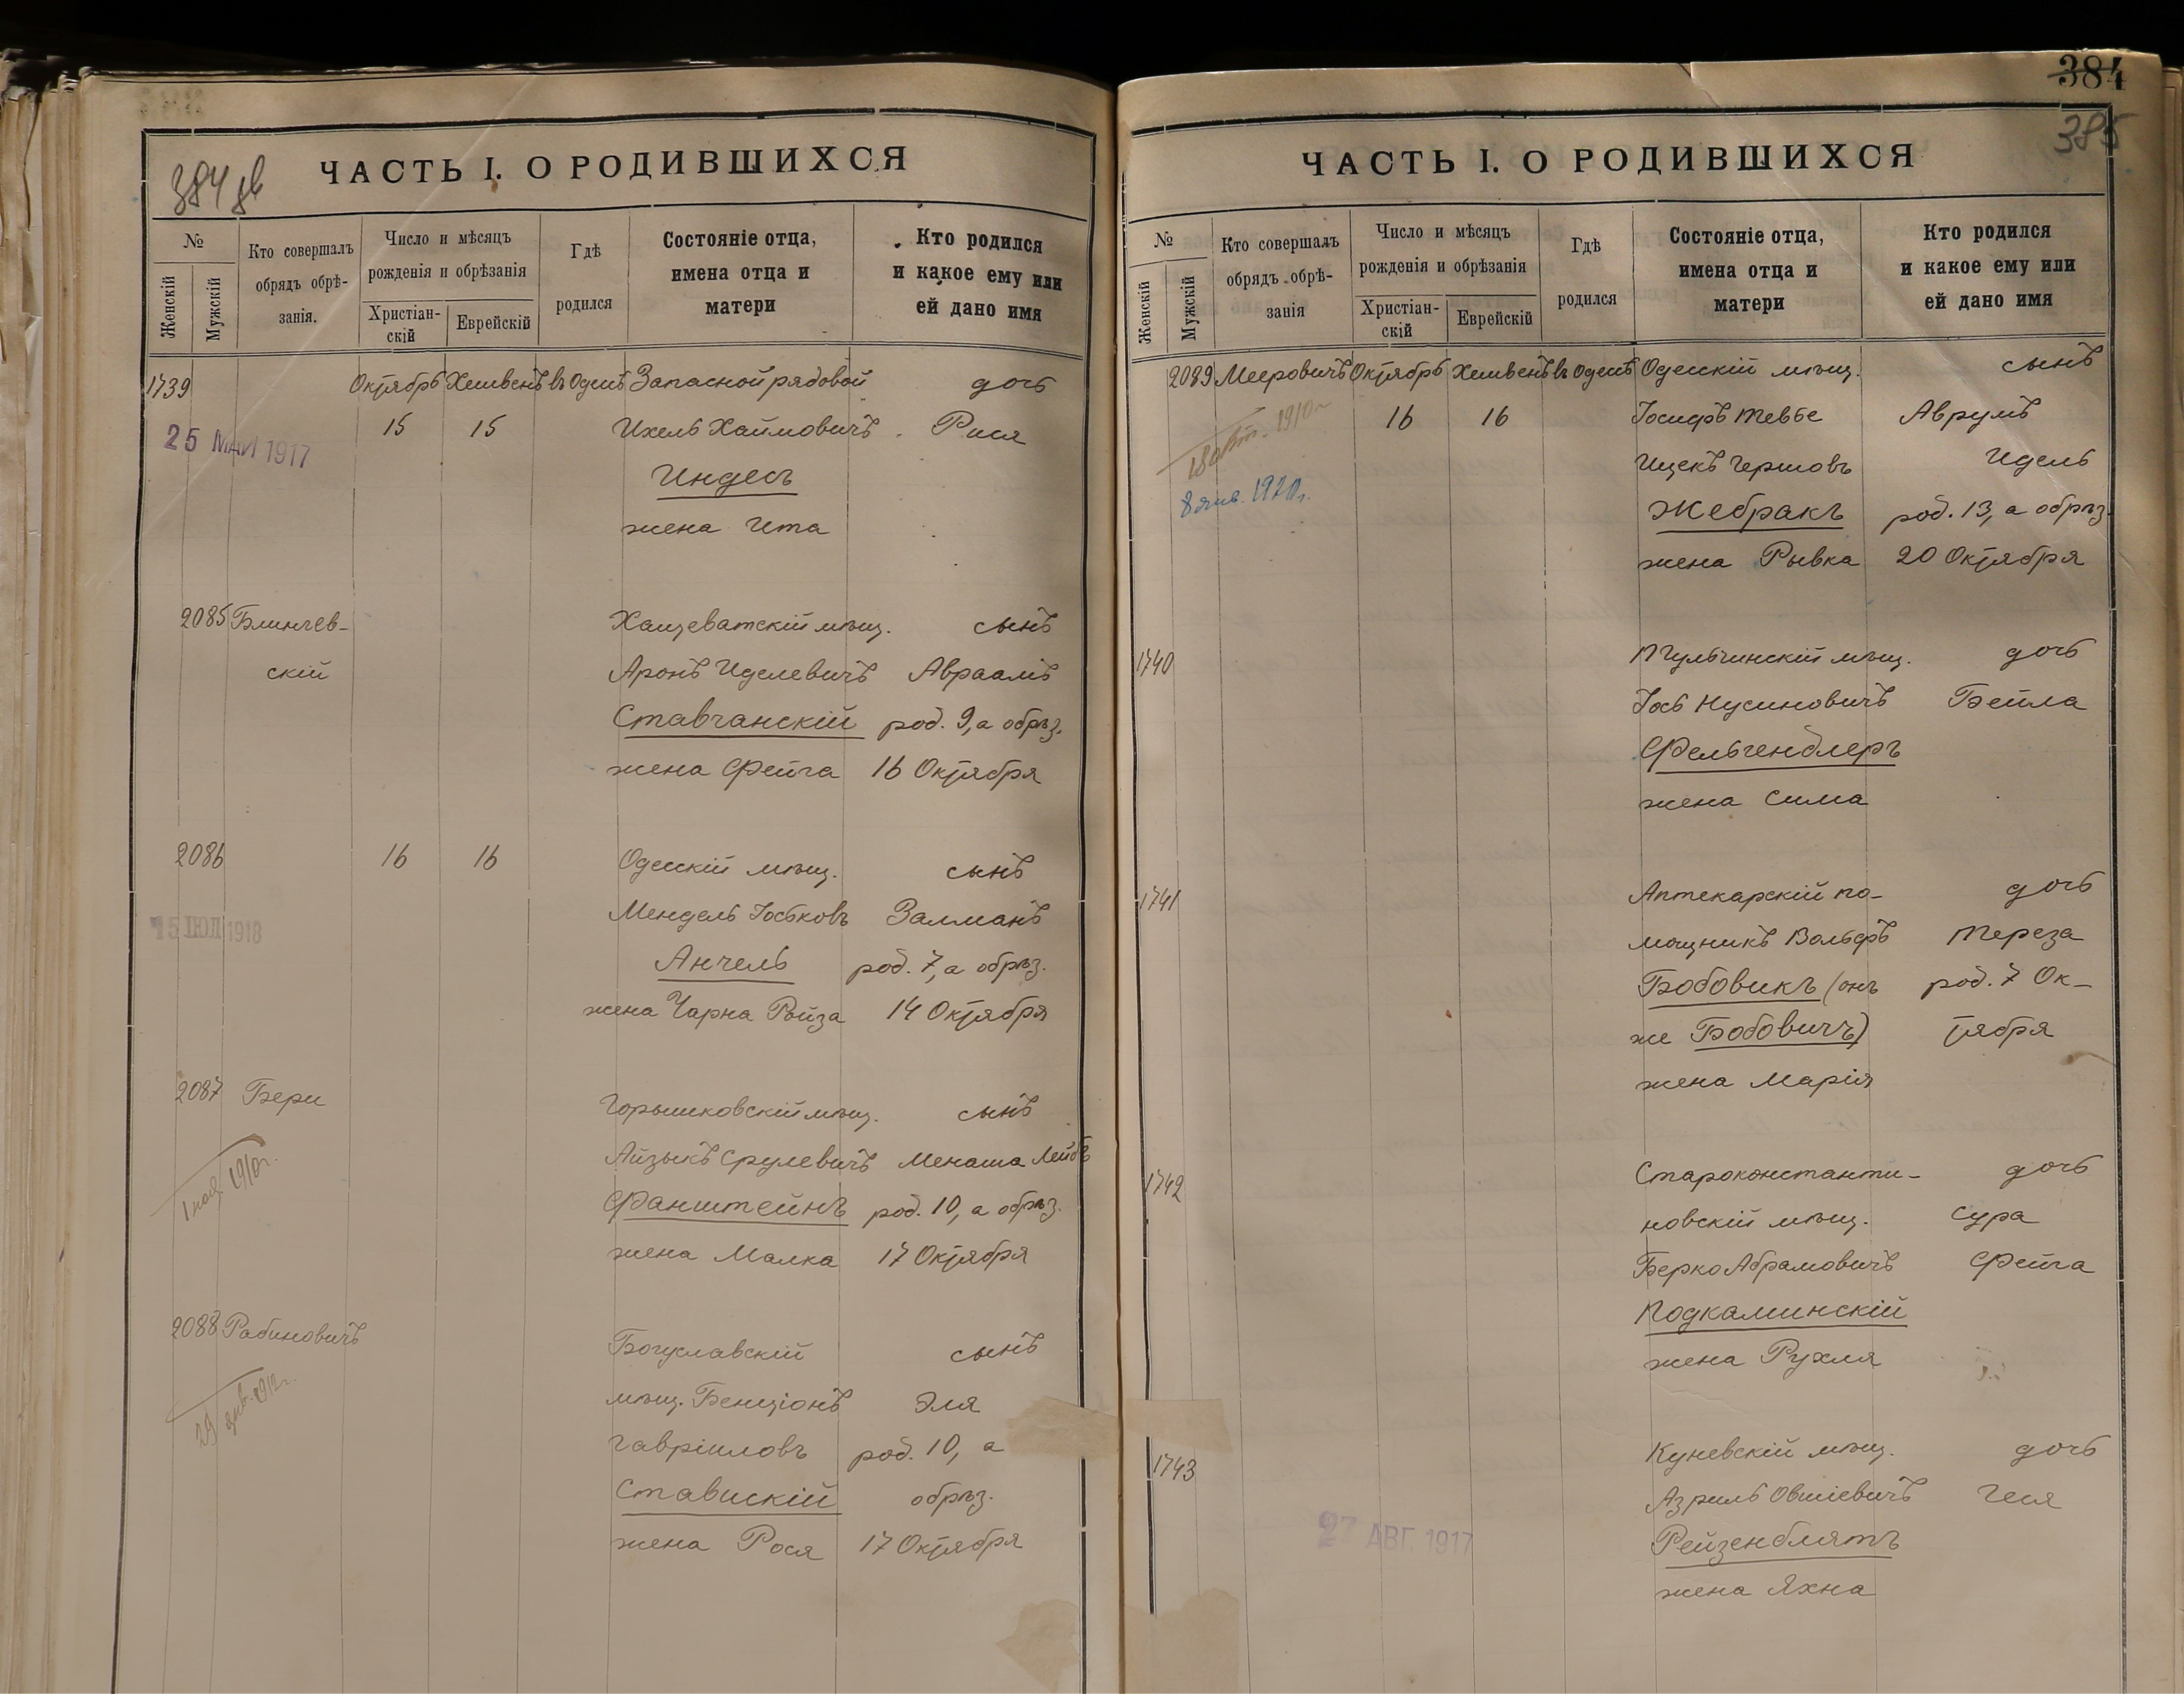 384 об
ЧАСТЬ I. О РОДИВШИХСЯ
№
Женскій
Мужскій
Кто совершалъ
обрядъ обрѣ-
занія.
Число и мѣсяцъ
рожденія и обрѣзанія
Христіан-
скій
Еврейскій
Гдѣ
родился
Состояніе отца,
имена отца и
матери
Кто родился
и какое ему или
ей дано имя
1739 Октябрь Хешвенъ въ Одесѣ Запасной рядовой дочь
15 15 Ихель Хаимовичъ Рися
25 МАЙ 1917
Индесъ
жена Ита
2085 Блинчев- Хащеватскій мѣщ. сынъ
скій Аронъ Иделевичъ Авраамъ
Ставчанскій род. 9, а обрѣз.
жена Фейга 16 Октября
2086 16 16 Одесскій мѣщ. сынъ
15 ІЮЛ 1918 Мендель Іоськовъ Залманъ
Анчель род. 7, а обрѣз.
жена Чарна Ройза 14 Октября
2087 Бери Горышковскій мѣщ. сынъ
Айзыкъ Срулевичъ Менаша Лейбъ
1 ноя. 1910г.
Файнштейнъ род. 10, а обрѣз.
жена Малка 17 Октября
2088 Рабиновичъ Богуславскій сынъ
29 янв. 1912г.
мѣщ. Бенціонъ Эля
Гавріиловъ род. 10, а
Ставискій обрѣз.
жена Рося 17 Октября
384
385
ЧАСТЬ I. О РОДИВШИХСЯ
№
Женскій
Мужскій
Кто совершалъ
обрядъ обрѣ-
занія
Число и мѣсяцъ
рожденія и обрѣзанія
Христіан-
скій
Еврейскій
Гдѣ
родился
Состояніе отца,
имена отца и
матери
Кто родился
и какое ему или
ей дано имя
2089 Мееровичъ Октябрь Хешвенъ въ Одесѣ Одесскій мѣщ. сынъ
16 16 Іосифъ Тевье Аврумъ
18 окт. 1910г
Ицекъ Гершовъ Идель
8 янв. 1920г.
Жебракъ род. 13, а обрѣз.
жена Рывка 20 Октября
1740 Тульчинскій мѣщ. дочь
Іось Нусиновичъ Бейла
Фельгенблеръ
жена Сима
1741 Аптекарскій по- дочь
мощникъ Вольфъ Тереза
Бобовикъ (онъ род. 7 Ок-
же Бобовичъ) тября
жена Марія
1742 Староконстанти- дочь
новскій мѣщ. Сура
Берко Абрамовичъ Фейга
Подкаминскій
жена Рухля
1743 Куневскій мѣщ. дочь
Азриль Овшіевичъ Геся
27 АВГ. 1917
Рейзенблятъ
жена Яхна